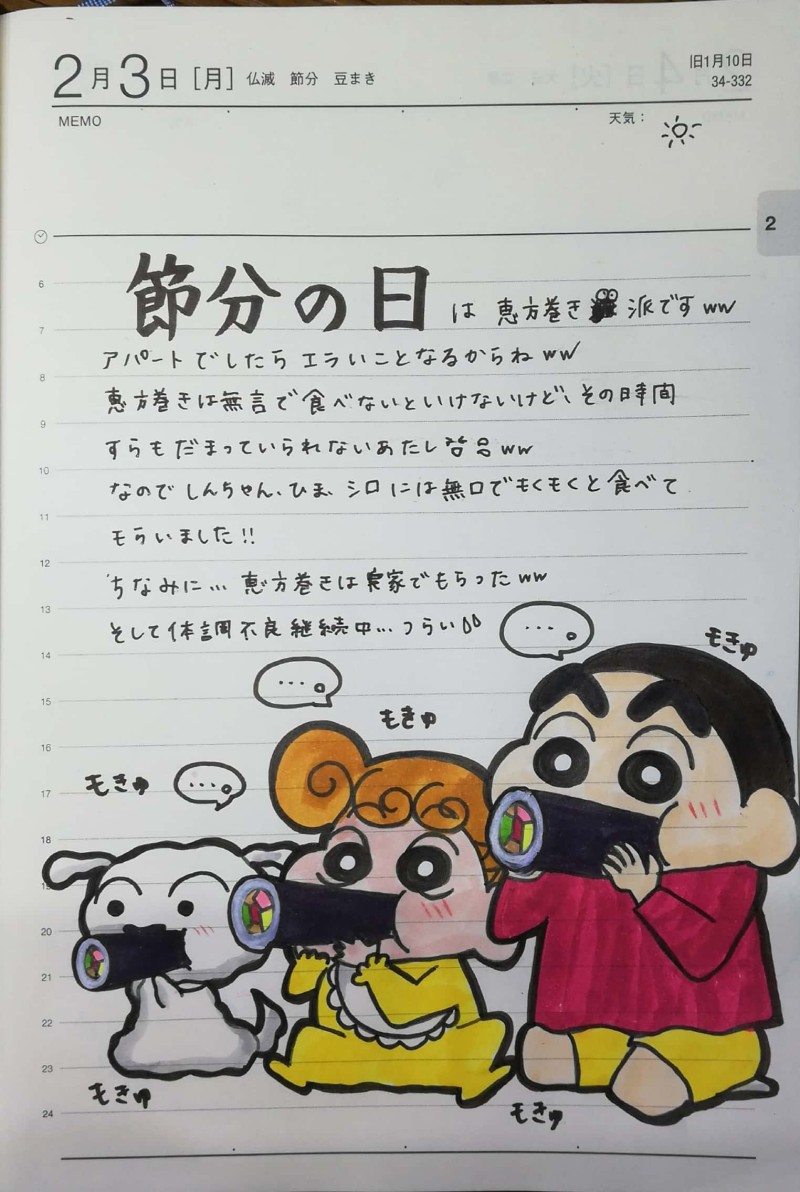 2月3日[月] 仏滅 節分 豆まき
旧1月10日
34-332
MEMO
天気：
2
6
節分の日は 恵方巻き 派ですww
7
アパートでしたらエラいことなるからねww
8
恵方巻きは無言で食べないといけないけど、その時間
9
すらもだまっていられないあたしww
10
なのでしんちゃん、ひま、シロには無口でもくもくと食べて
11
もらいました!!
12
ちなみに... 恵方巻きは実家でもらったww
13
そして体調不良継続中...つらい
14
...。
もきゅ
15
...。
16
もきゅ
17
もきゅ
...。
18
19
20
21
22
23
もきゅ
24
もきゅ